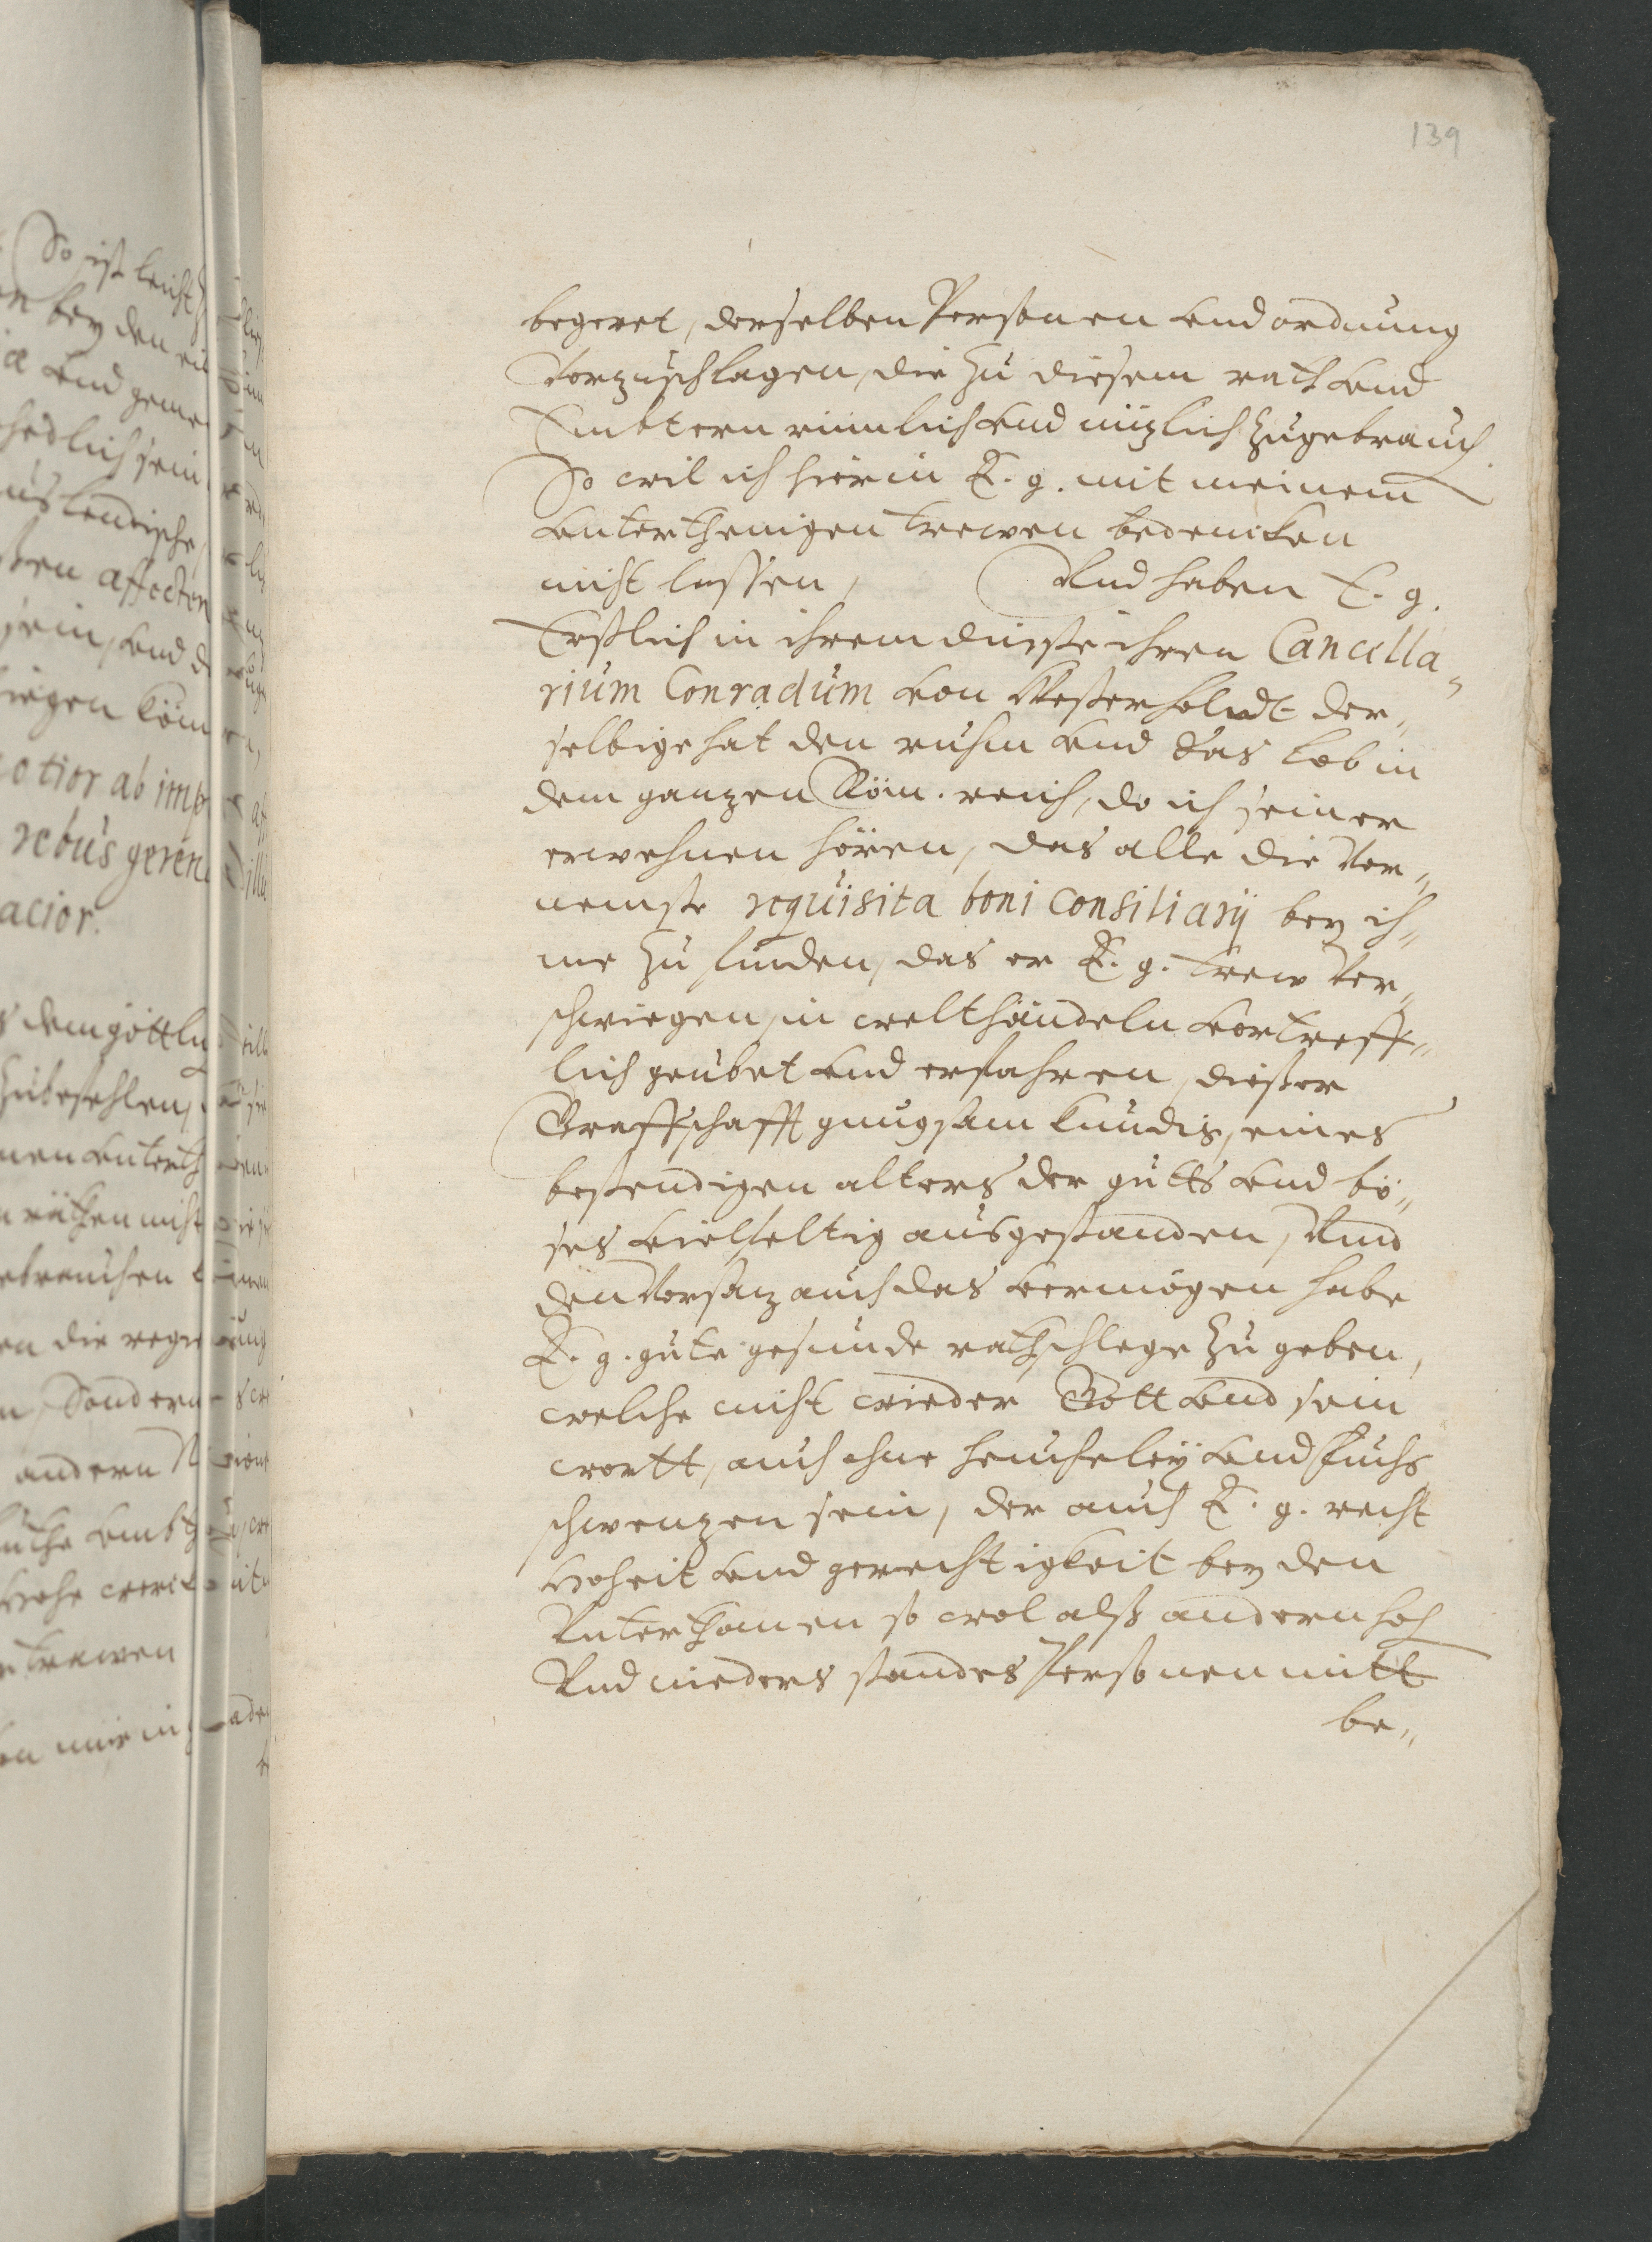 139
begeret, derselben Personen vnd ordnung
Vorzuschlagen, die zu diesem rath vnd
Embtern rümlich vnd nüzlich zugebrauch.
So wil ich hierin E. g. mit meinem
vnterthenigen trewen bedencken
nicht lassen, Vnd haben E. g.
Erstlich in ihrem dinste ihren Cancella„
rium Conradum von Westerholdt der„
selbige hat den ruhm vnd das lob in
dem ganzen Röm. reich, do ich seiner
erwehnen hören, das alle die Vor„
nemste requisita boni Consiliarij bey ih„
me zu finden, das er E. g. trew Ver„
schwiegen, in welthändeln vortreff„
lich geübet vnd erfahren, dießer
Graffschafft gnugsam kundig, eines
bestendigen alters der gutts vnd bö„
ses vielfeltig ausgestanden, Vnd
den Vorsaz auch das vermögen habe
E. g. gute gesunde rathschlege zu geben,
welche nicht wieder Gott vnd sein
wortt, auch ohne heucheleÿ vnd fuchs
schwenzen sein, der auch E. g. recht
Hoheit vnd gerechtigkeit bey den
Vnterthanen so wol alß andern hoh
Vnd nieders standes Personen mitt
be„